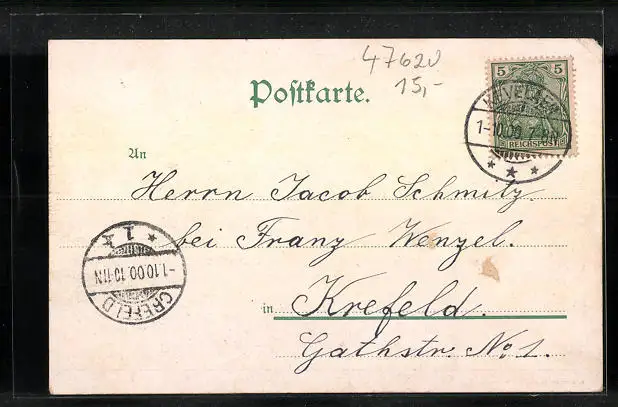 47620
15,-
Postkarte.
5 5
REICHSPOST
KEVELAER
1-10.00. 7-8N
An
Herrn Jacob Schmitz.
bei Franz Wenzel.
in Krefeld.
Gathstr. No 1.
CREFELD
-1.10.00.10-11N
1